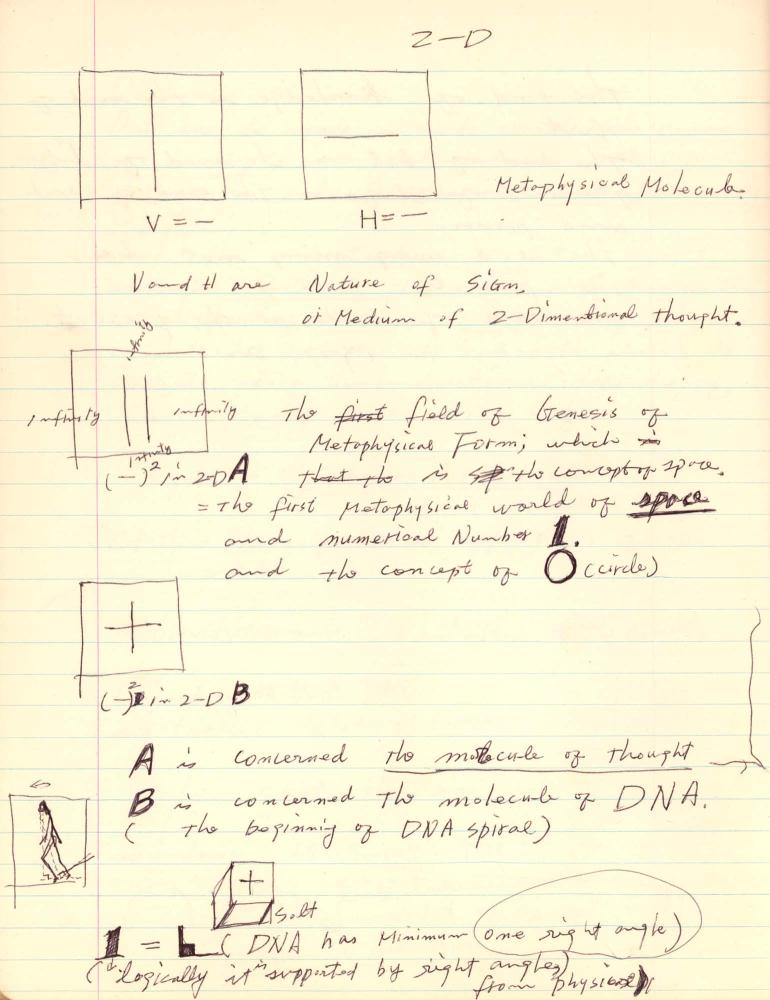 2-D
Metaphysical Molecule.
V = —
H = —
V and H are Nature of Sign,
or Medium of 2-Dimentional thought.
infinity
infinity
infinity
infinity
(—)² in 2-D A
The first field of Genesis of
Metaphysical Form; which is
that the is sp the concept of space.
= The first Metaphysical world of space
and numerical Number 1.
and the concept of O (circle)
(—)² in 2-D B
A is concerned the molecule of thought
B is concerned the molecule of DNA.
( The beginning of DNA spiral)
Salt
1 = L ( DNA has Minimum one right angle)
( logically it is supported by right angles)
from physics)